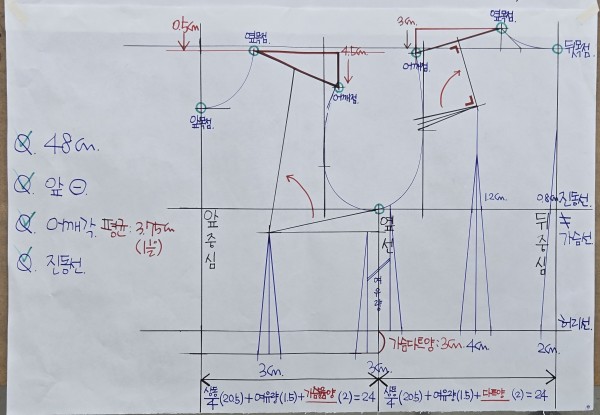 0.5cm
옆목점.
4.5cm
어깨점.
앞목점.
3cm
옆목점.
어깨점.
뒤목점.
Q. 48cm.
Q. 앞⊖.
Q. 어깨각. 평균: 3.75cm
(1½")
Q. 진동선.
앞중심
옆선
여유량
뒤중심
1.2cm
0.8cm
진동선
≠
가슴선.
허리선.
가슴다트양:3cm.
3cm
4cm.
2cm.
상동/4 (20.5)+여유량(1.5)+가슴움양 (2)=24
상동/4 (20.5)+여유량(1.5)+다트양 (2)=24